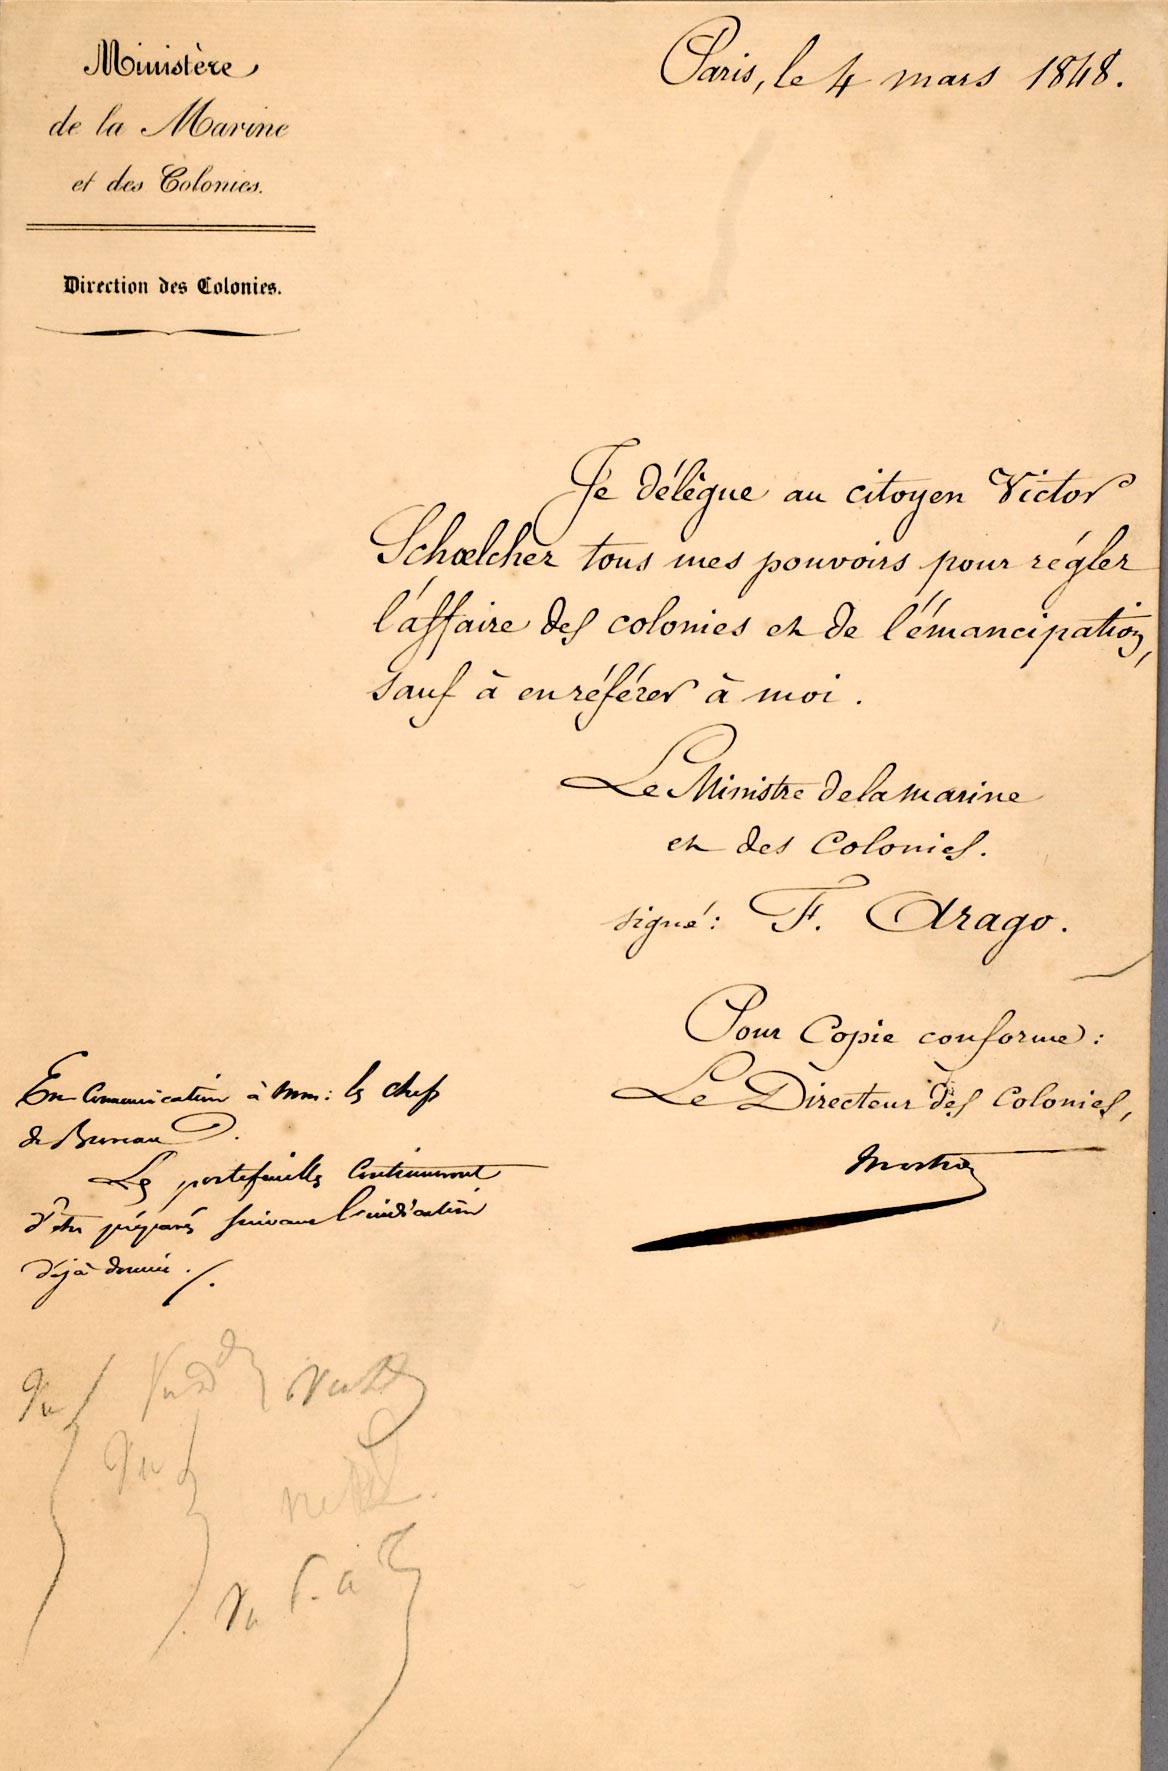 Ministère
de la Marine
et des Colonies.
Direction des Colonies.
Paris, le 4 mars 1848.
Je délègue au citoyen Victor
Schœlcher tous mes pouvoirs pour régler
l'affaire des colonies et de l'émancipation,
sauf à en référer à moi.
Le Ministre de la marine
et des Colonies.
signé: F. Arago.
Pour Copie conforme:
Le Directeur des Colonies,
En Communication à MM: les chefs
de Bureau.
Les portefeuilles continueront
d'être préparés suivant l'indication
déjà donnée ./.
Vu
Vu
Vu
Vu